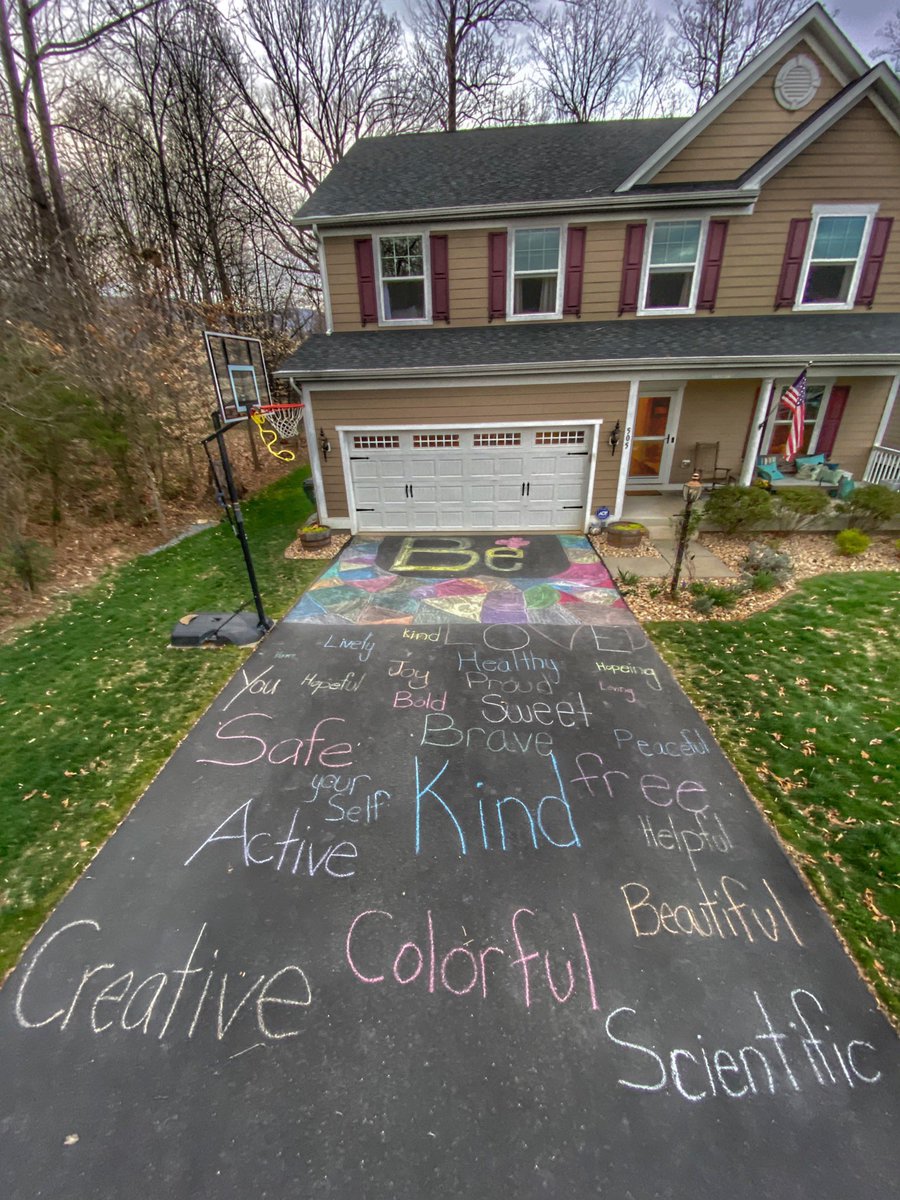 505
ADT
Be
kind LOVED
Lively
Healthy
Joy
Hopeing
You Hopeful
Proud
Loving
Bold
Sweet
Safe
Brave
Peaceful
your
Self
Kind
free
Active
Helpful
Beautiful
Creative
Colorful
Scientific